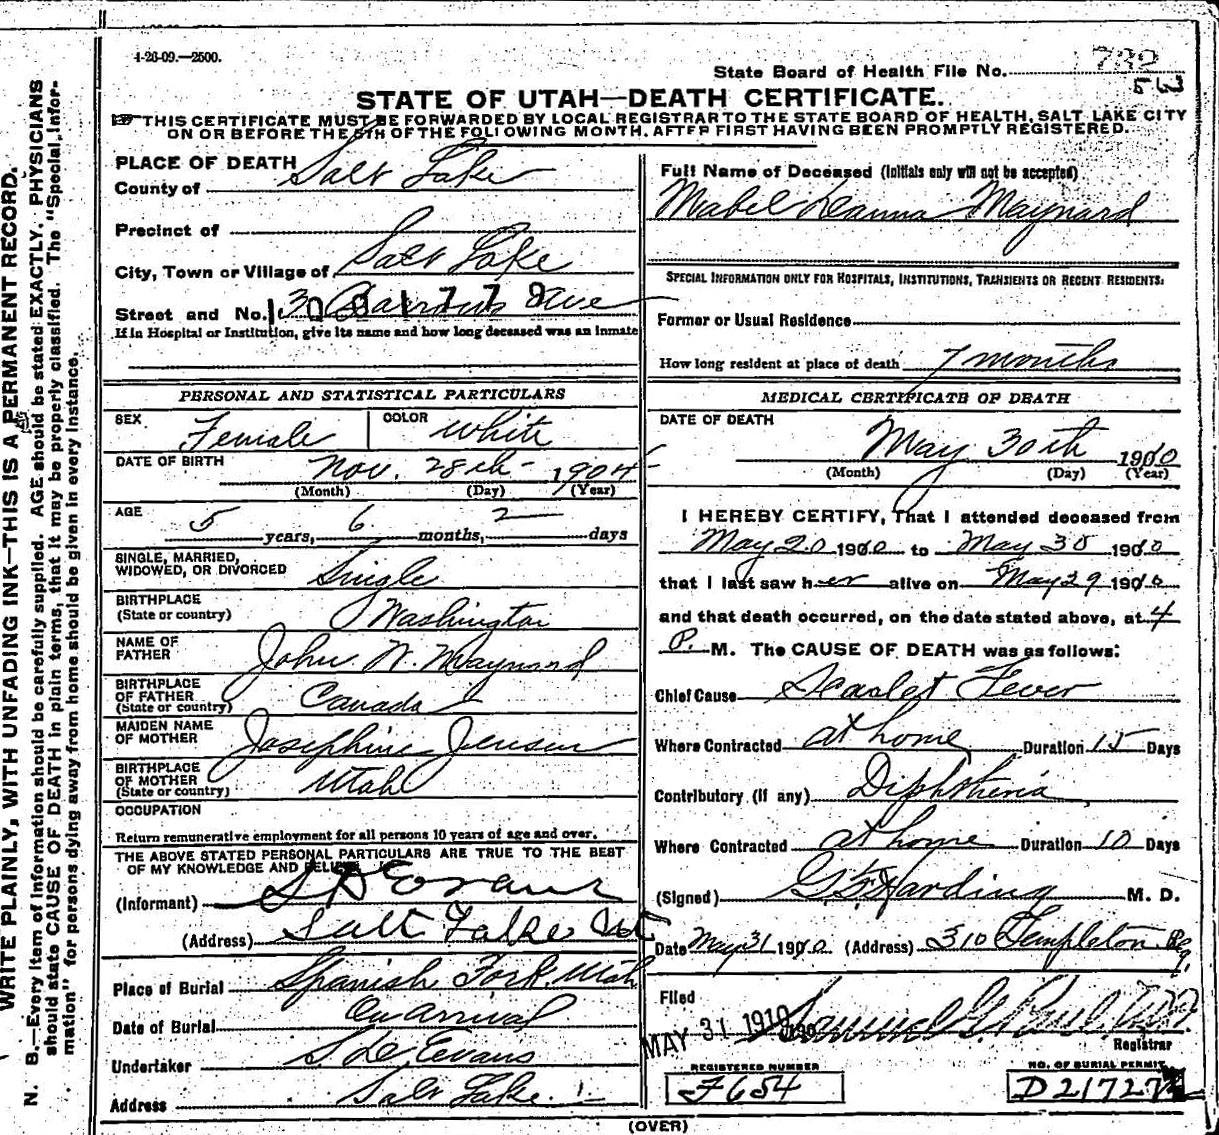 4-26-09.—2500.
State Board of Health File No. 732
53
STATE OF UTAH—DEATH CERTIFICATE.
THIS CERTIFICATE MUST BE FORWARDED BY LOCAL REGISTRAR TO THE STATE BOARD OF HEALTH, SALT LAKE CITY
ON OR BEFORE THE 5TH OF THE FOLLOWING MONTH, AFTER FIRST HAVING BEEN PROMPTLY REGISTERED.
WRITE PLAINLY, WITH UNFADING INK—THIS IS A PERMANENT RECORD.
N. B.—Every item of information should be carefully supplied. AGE should be stated EXACTLY. PHYSICIANS
should state CAUSE OF DEATH in plain terms, that it may be properly classified. The "Special Infor-
mation" for persons dying away from home should be given in every instance.
PLACE OF DEATH
County of Salt Lake
Precinct of
City, Town or Village of Salt Lake
Street and No. 13 Ave
If in Hospital or Institution, give its name and how long deceased was an inmate
PERSONAL AND STATISTICAL PARTICULARS
SEX Female COLOR White
DATE OF BIRTH Nov. 28th - 1904
(Month) (Day) (Year)
AGE 5 years, 6 months, 2 days
SINGLE, MARRIED,
WIDOWED, OR DIVORCED Single
BIRTHPLACE
(State or country) Washington
NAME OF
FATHER John W. Maynard
BIRTHPLACE
OF FATHER
(State or country) Canada
MAIDEN NAME
OF MOTHER Josephine Jensen
BIRTHPLACE
OF MOTHER
(State or country) Utah
OCCUPATION
Return remunerative employment for all persons 10 years of age and over.
THE ABOVE STATED PERSONAL PARTICULARS ARE TRUE TO THE BEST
OF MY KNOWLEDGE AND BELIEF
(Informant) S D Evans
(Address) Salt Lake Ut
Place of Burial Spanish Fork Utah
Date of Burial On Arrival
Undertaker S. D. Evans
Address Salt Lake.
Full Name of Deceased (Initials only will not be accepted)
Mabel Leanna Maynard
SPECIAL INFORMATION ONLY FOR HOSPITALS, INSTITUTIONS, TRANSIENTS OR RECENT RESIDENTS:
Former or Usual Residence
How long resident at place of death 7 months
MEDICAL CERTIFICATE OF DEATH
DATE OF DEATH
May 30th 1910
(Month) (Day) (Year)
I HEREBY CERTIFY, That I attended deceased from
May 20 1910 to May 30 1910
that I last saw her alive on May 29 1910
and that death occurred, on the date stated above, at 4
P. M. The CAUSE OF DEATH was as follows:
Chief Cause Scarlet Fever
Where Contracted at home Duration 15 Days
Contributory (if any) Diphtheria
Where Contracted at home Duration 10 Days
(Signed) G F Harding M. D.
Date May 31 1910 (Address) 310 Templeton Bg.
Filed
MAY 31 1910 190 Samuel G. Paul
Registrar
REGISTERED NUMBER
F654
NO. OF BURIAL PERMIT
D 21727
(OVER)